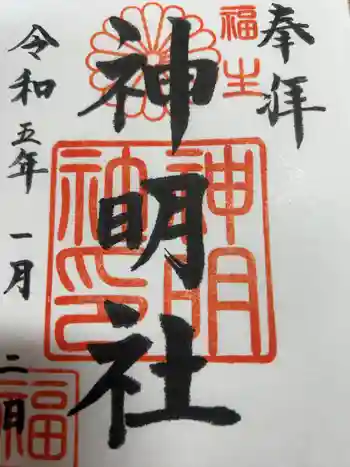 奉拝
福生
神明社
神明社印
令和五年一月二日
福